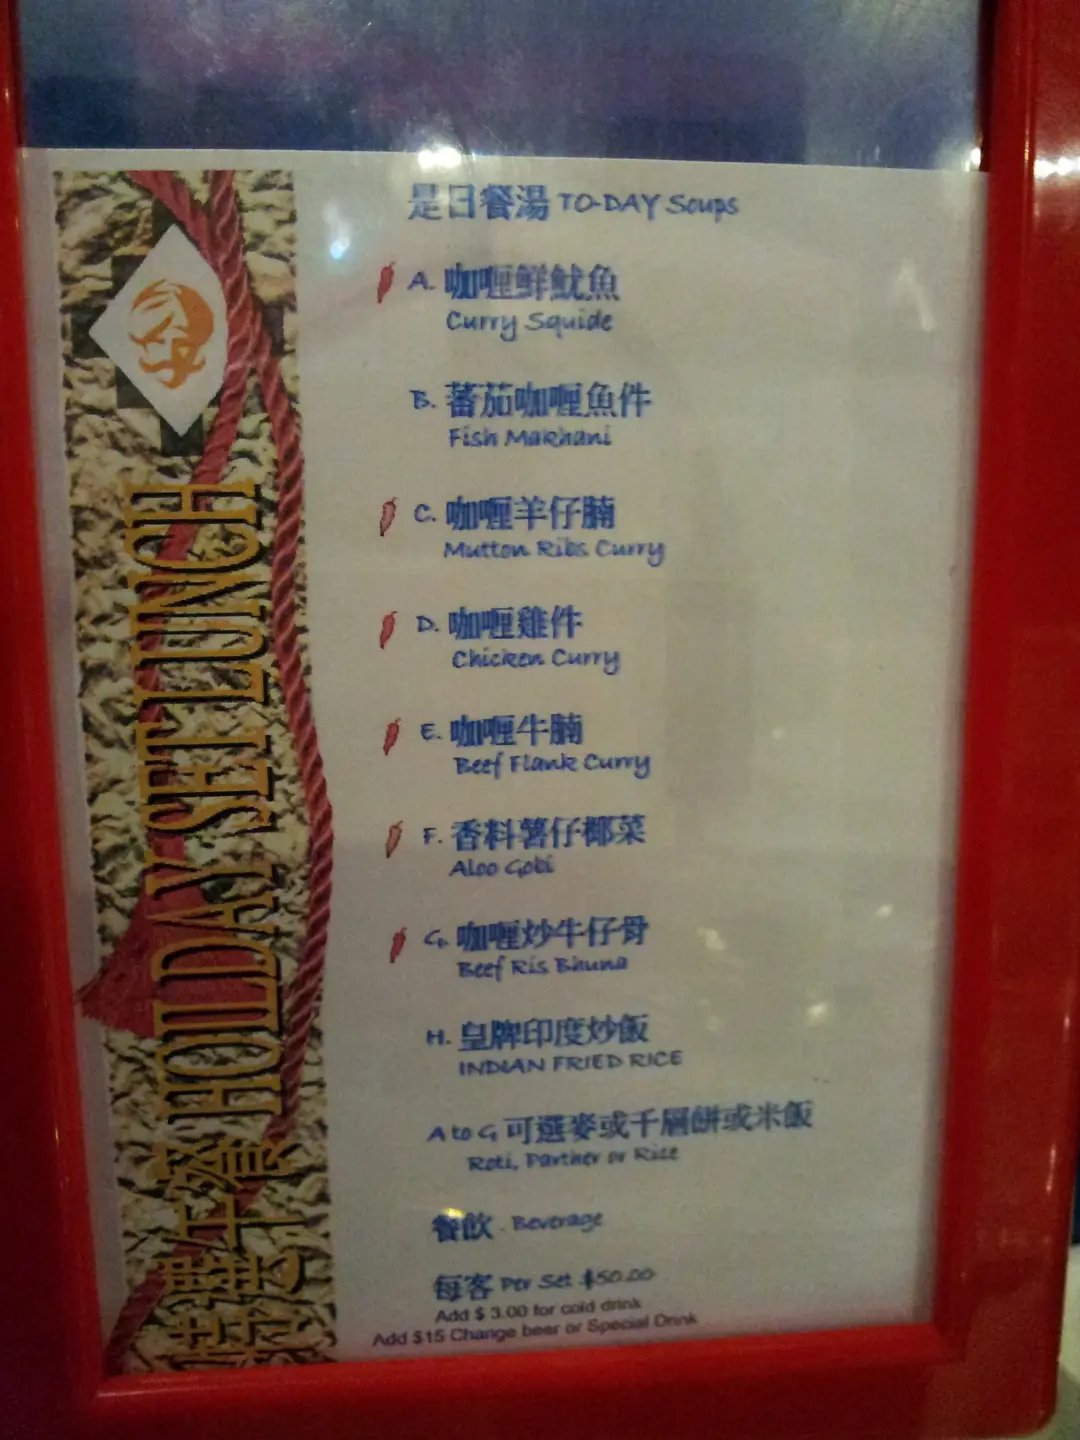 是日餐湯 TO-DAY Soups
A. 咖喱鮮魷魚
Curry Squide
B. 蕃茄咖喱魚件
Fish Makhani
C. 咖喱羊仔腩
Mutton Ribs Curry
D. 咖喱雞件
Chicken Curry
E. 咖喱牛腩
Beef Flank Curry
F. 香料薯仔椰菜
Aloo Gobi
G. 咖喱炒牛仔骨
Beef Ris Bhuna
H. 皇牌印度炒飯
INDIAN FRIED RICE
A to G 可選麥或千層餅或米飯
Roti, Parther or Rice
餐飲 . Beverage
每客 Per Set $50.00
Add $ 3.00 for cold drink
Add $15 Change beer or Special Drink
特選午餐 HOLIDAY SET LUNCH